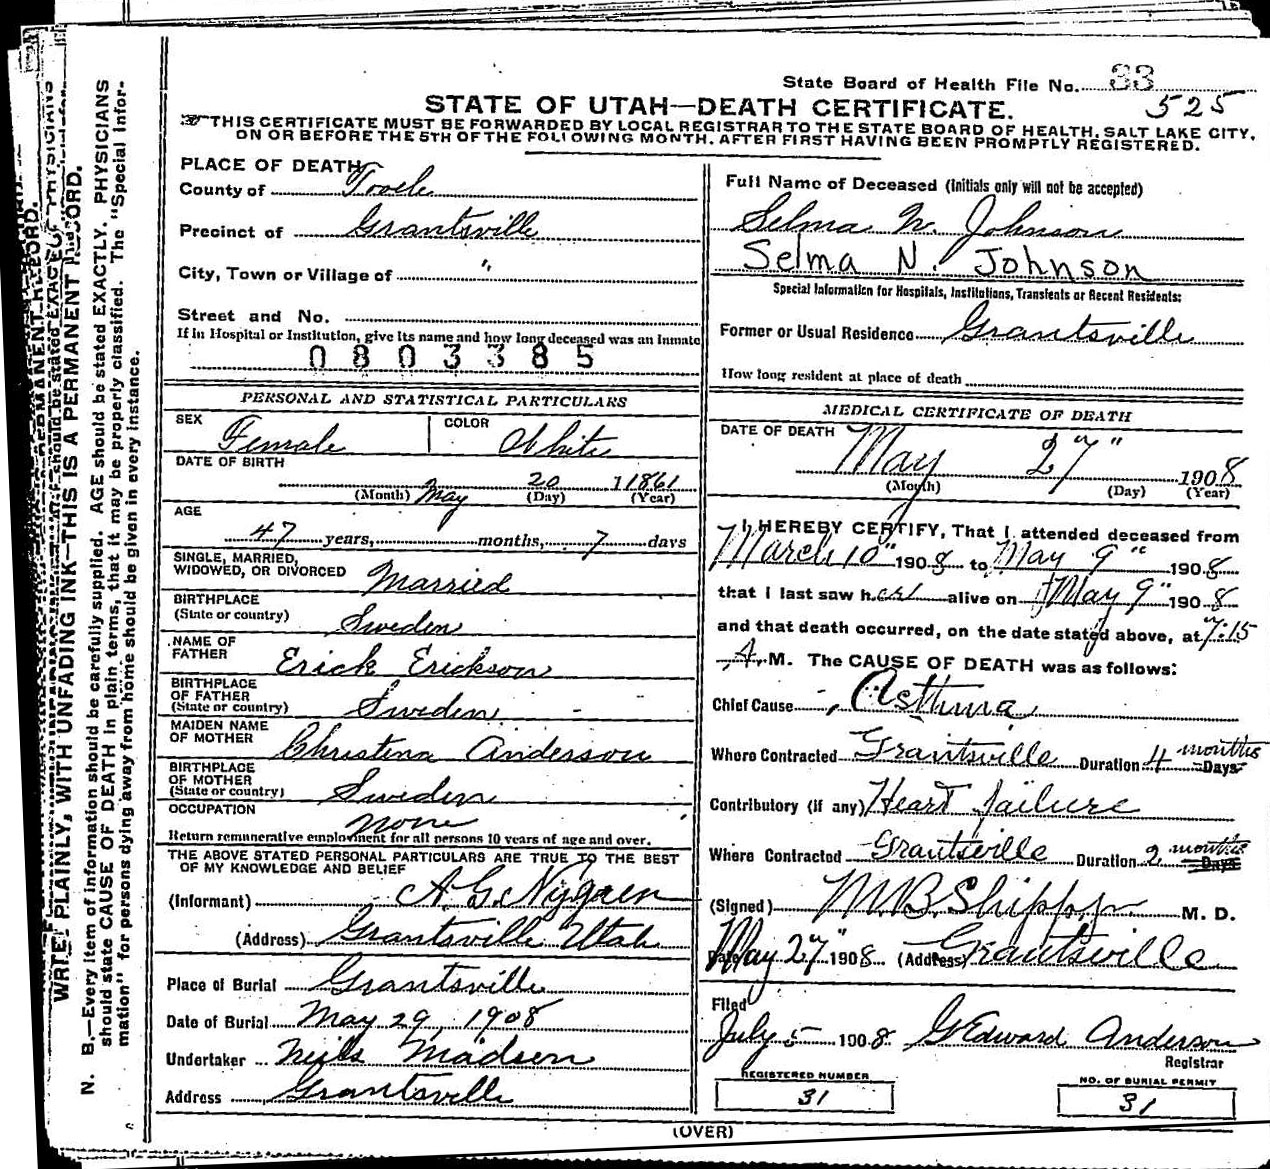 State Board of Health File No. 33
525
STATE OF UTAH—DEATH CERTIFICATE.
THIS CERTIFICATE MUST BE FORWARDED BY LOCAL REGISTRAR TO THE STATE BOARD OF HEALTH, SALT LAKE CITY,
ON OR BEFORE THE 5TH OF THE FOLLOWING MONTH, AFTER FIRST HAVING BEEN PROMPTLY REGISTERED.
PLACE OF DEATH
County of Tooele
Precinct of Grantsville
City, Town or Village of "
Street and No.
If in Hospital or Institution, give its name and how long deceased was an Inmate
0803385
PERSONAL AND STATISTICAL PARTICULARS
SEX Female COLOR White
DATE OF BIRTH
May 20 1861
(Month) (Day) (Year)
AGE
47 years, months, 7 days
SINGLE, MARRIED,
WIDOWED, OR DIVORCED Married
BIRTHPLACE
(State or country) Sweden
NAME OF
FATHER Erick Erickson
BIRTHPLACE
OF FATHER
(State or country) Sweden
MAIDEN NAME
OF MOTHER Christina Anderson
BIRTHPLACE
OF MOTHER
(State or country) Sweden
OCCUPATION
none
Return remunerative employment for all persons 10 years of age and over.
THE ABOVE STATED PERSONAL PARTICULARS ARE TRUE TO THE BEST
OF MY KNOWLEDGE AND BELIEF
(Informant) A. G. Nygren
(Address) Grantsville Utah
Place of Burial Grantsville
Date of Burial May 29, 1908
Undertaker Neils Madsen
Address Grantsville
Full Name of Deceased (initials only will not be accepted)
Selma N. Johnson
Selma N. Johnson
Special Information for Hospitals, Institutions, Transients or Recent Residents:
Former or Usual Residence Grantsville
How long resident at place of death
MEDICAL CERTIFICATE OF DEATH
DATE OF DEATH
May 27" 1908
(Month) (Day) (Year)
I HEREBY CERTIFY, That I attended deceased from
March 10" 1908 to May 9" 1908
that I last saw her alive on May 9" 1908
and that death occurred, on the date stated above, at 7:15
A. M. The CAUSE OF DEATH was as follows:
Chief Cause Asthma
Where Contracted Grantsville Duration 4 months Days
Contributory (if any) Heart failure
Where Contracted Grantsville Duration 2 months Days
(Signed) M. B. Shipp Jr M. D.
Date May 27" 1908 (Address) Grantsville
Filed
July 5 1908 G Edward Anderson
Registrar
REGISTERED NUMBER
31
NO. OF BURIAL PERMIT
31
(OVER)
WRITE PLAINLY, WITH UNFADING INK—THIS IS A PERMANENT RECORD.
N. B.—Every item of information should be carefully supplied. AGE should be stated EXACTLY. PHYSICIANS
should state CAUSE OF DEATH in plain terms, that it may be properly classified. The "Special Infor-
mation" for persons dying away from home should be given in every instance.